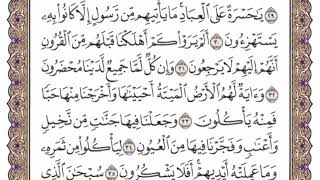 ٢٩ يَٰحَسْرَةً عَلَى ٱلْعِبَادِ مَا يَأْتِيهِم مِّن رَّسُولٍ إِلَّا كَانُوا۟ بِهِۦ
يَسْتَهْزِءُونَ ٣٠ أَلَمْ يَرَوْا۟ كَمْ أَهْلَكْنَا قَبْلَهُم مِّنَ ٱلْقُرُونِ
أَنَّهُمْ إِلَيْهِمْ لَا يَرْجِعُونَ ٣١ وَإِن كُلٌّ لَّمَّا جَمِيعٌ لَّدَيْنَا مُحْضَرُونَ
٣٢ وَءَايَةٌ لَّهُمُ ٱلْأَرْضُ ٱلْمَيْتَةُ أَحْيَيْنَٰهَا وَأَخْرَجْنَا مِنْهَا حَبًّا
فَمِنْهُ يَأْكُلُونَ ٣٣ وَجَعَلْنَا فِيهَا جَنَّٰتٍ مِّن نَّخِيلٍ
وَأَعْنَٰبٍ وَفَجَّرْنَا فِيهَا مِنَ ٱلْعُيُونِ ٣٤ لِيَأْكُلُوا۟ مِن ثَمَرِهِۦ
وَمَا عَمِلَتْهُ أَيْدِيهِمْ أَفَلَا يَشْكُرُونَ ٣٥ سُبْحَٰنَ ٱلَّذِى